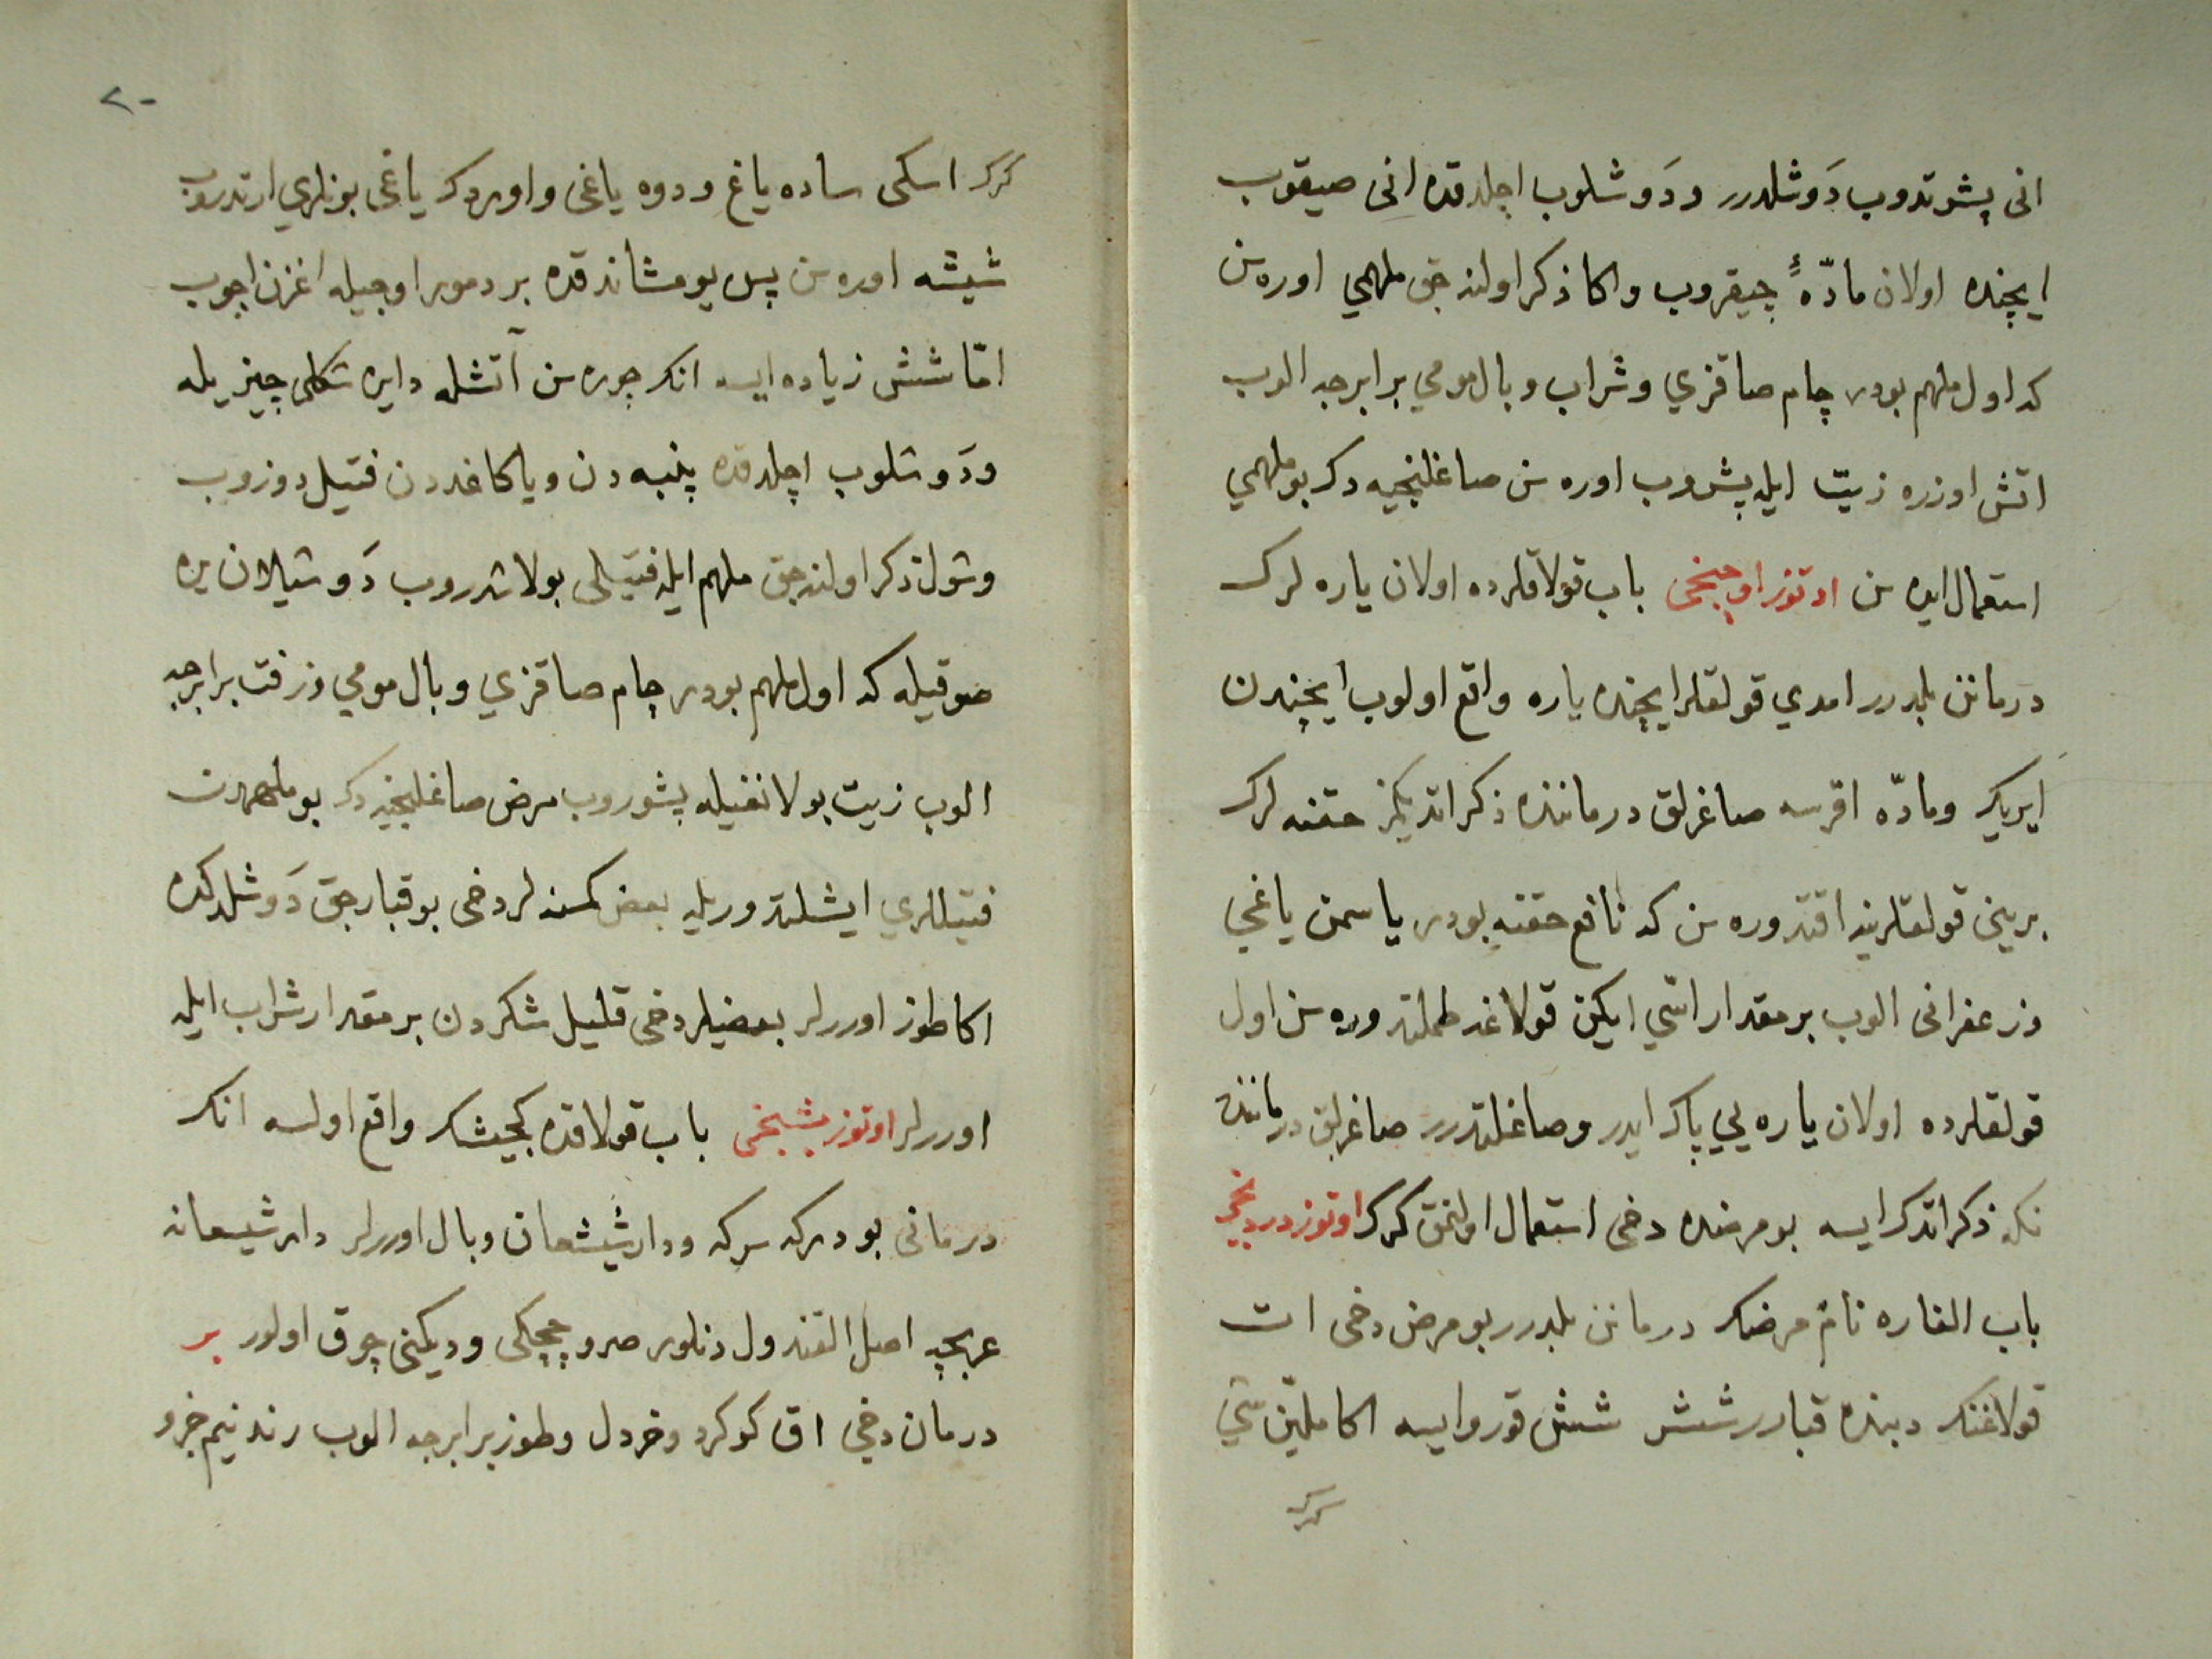 انى پشوتدوب دَوشلدرر ودَوشلوب اچلدقده انى صيقوب
ايچنده اولان مادّهءِ چيقروب واكا ذكر اولنه جق ملهمي اوره سن
كه اول ملهم بودر چام صاقزي وشراب وبال مومي برابرجه الوب
اتش اوزره زيت ايله پشروب اوره سن صاغلنجيه دك بو ملهمي
استعمال ايده سن اوتوز اوچنجى باب قولاقلرده اولان ياره لرك
درمانن بلدرر امدي قولقلر ايچنده ياره واقع اولوب ايچندن
ايريك ومادّه اقرسه صاغرلق درماننده ذكر اتديكمز حقنه لرك
برينى قولقلرينه اقتدوره سن كه نافع حقنه بودر ياسمن ياغي
وزعفرانى الوب بر مقدار اسّي ايكن قولاغه طملتدوره سن اول
قولقلرده اولان ياره يي پاك ايدر وصاغلتدرر صاغرلق درماننده
نكه ذكر اتدك ايسه بو مرضده دخى استعمال اولنمق كرك اوتوز دردنجى
باب الفاره نام مرضك درمانن بلدرر بو مرض دخى ات
قولاغنك دبنده قبارر ششر شش قورو ايسه اكا ملين شي
كرك
٢٠
كرك اسكى ساده ياغ ودوه ياغى واوردك ياغى بونلري ارتدروب
ششه اوره سن پس يومشاندقده بر دمور اوجيله اغزن اچوب
امّا شش زياده ايسه انك چوره سن آتشله دايره شكلى چيزيله
ودَوشلوب اچلدقده پنبه دن ويا كاغددن فتيل دوزوب
وشول ذكر اولنه جق ملهم ايله فتيلى بولاشدروب دَوشيلان يره
صوقيله كه اول ملهم بودر چام صاقزي وبال مومي وزفت برابرجه
الوب زيت بولانغيله پشوروب مرض صاغلنجيه دك بو ملهمدن
فتيللري ايشلتدوريله بعض كمسنه لر دخى بو قبارجق دَوشلدكده
اكا طوز اوررلر بعضيلر دخى قليل شكردن بر مقدار شراب ايله
اوررلر اوتوز بشنجى باب قولاقده كيجيشك واقع اولسه انك
درمانى بودركه سركه ودارشيشعان وبال اوررلر دارشيسعانه
عربجه اصل القندول دنلور صرو چچكى وديكنى چوق اولور بر
درمان دخي اق كوكرد وخردل وطوز برابرجه الوب رنده نيم خرد